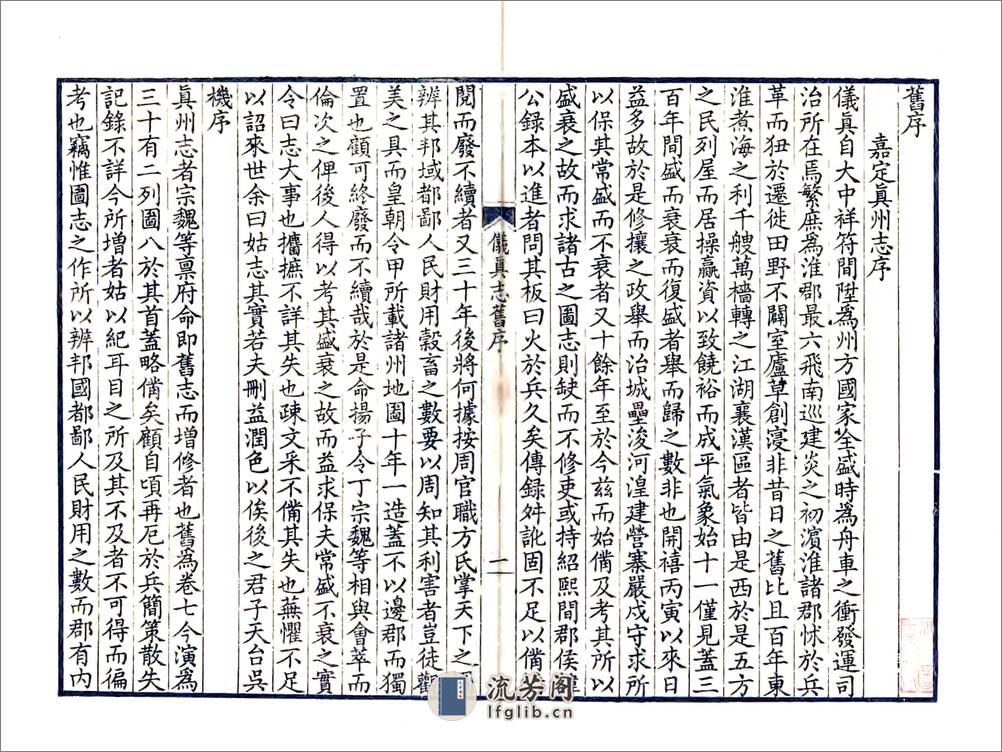 舊序
嘉定眞州志序
儀眞自大中祥符間陞爲州方國家全盛時爲舟車之衝發運司
治所在焉繁庶爲淮郡最六飛南巡建炎之初濵淮諸郡怵於兵
革而狃於遷徙田野不闢室廬草創寖非昔日之舊比且百年東
淮煮海之利千艘萬檣轉之江湖襄漢區者皆由是西於是五方
之民列屋而居操贏資以致饒裕而成平氣象始十一僅見蓋三
百年間盛而衰衰而復盛者舉而歸之數非也開禧丙寅以來日
益多故於是修攘之政舉而治城壘浚河湟建營寨嚴戍守求所
以保其常盛而不衰者又十餘年至於今兹而始備及考其所以
盛衰之故而求諸古之圖志則缺而不修吏或持紹熙間郡侯韓
公録本以進者問其板曰火於兵久矣傳録舛訛固不足以備
儀眞志舊序
一
閱而廢不續者又三十年後將何據按周官職方氏掌天下之
辨其邦域都鄙人民財用穀畜之數要以周知其利害者豈徒觀
美之具而皇朝令甲所載諸州地圖十年一造蓋不以邊郡而獨
置也顧可終廢而不續哉於是命揚子令丁宗魏等相與會萃而
倫次之俾後人得以考其盛衰之故而益求保夫常盛不衰之實
令曰志大事也攟摭不詳其失也疎文采不備其失也蕪懼不足
以詔來世余曰姑志其實若夫刪益潤色以俟後之君子天台吳
機序
眞州志者宗魏等禀府命即舊志而增修者也舊爲卷七今演爲
三十有二列圖八於其首蓋略備矣顧自頃再厄於兵簡策散失
記錄不詳今所增者姑以紀耳目之所及其不及者不可得而徧
考也竊惟圖志之作所以辨邦國都鄙人民財用之數而郡有内
流芳阁
lfglib.cn